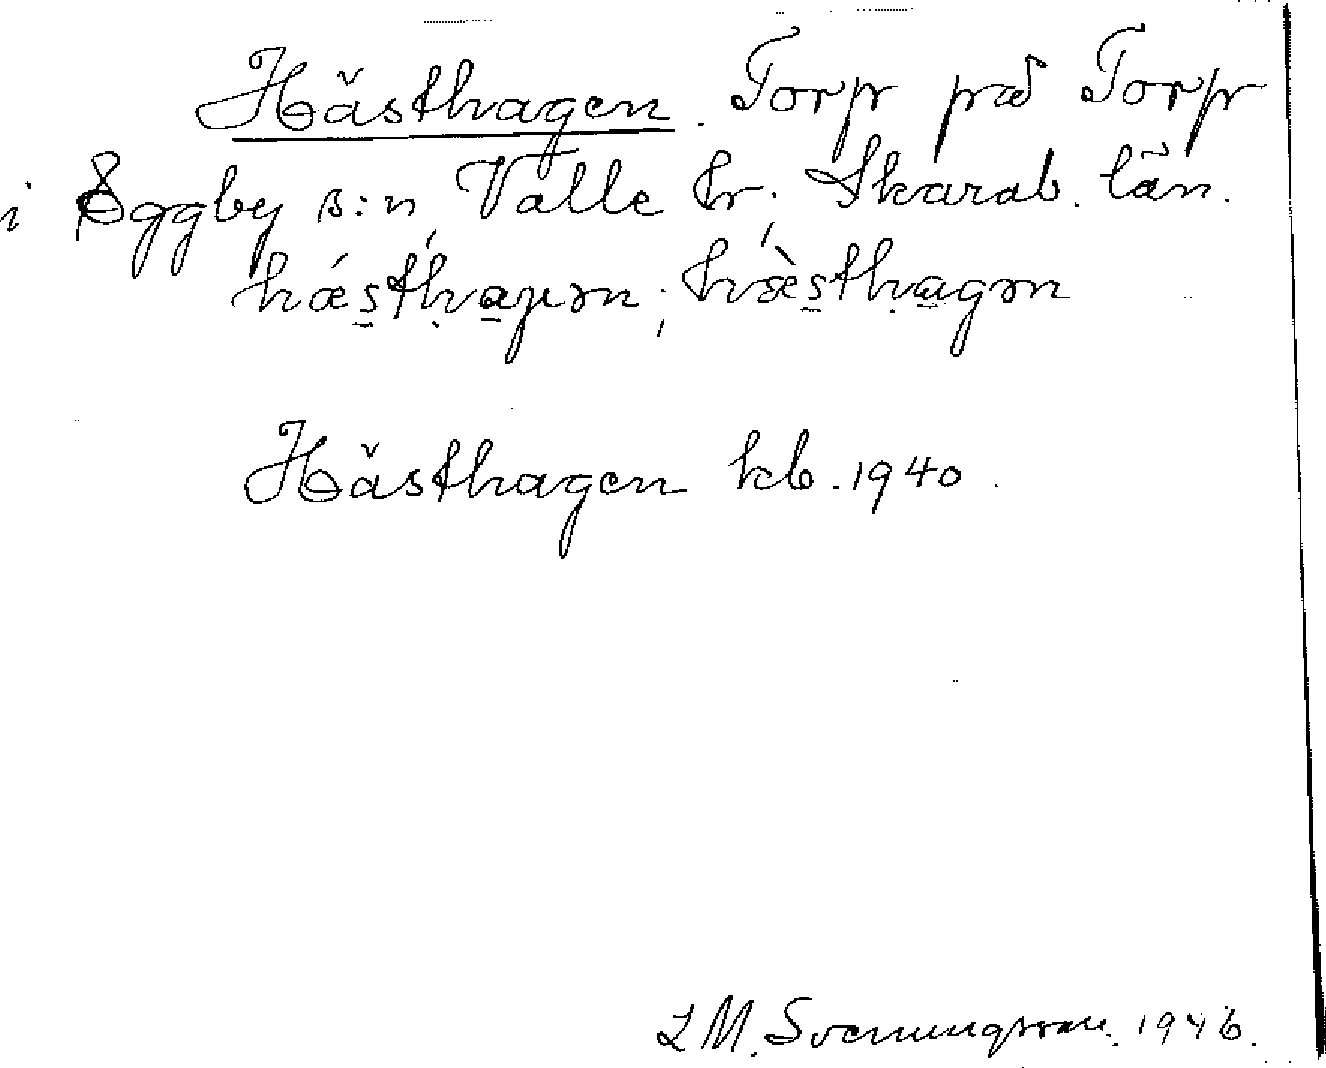 Hästhagen. Torp på Torp
i Eggby s:n, Valle hd; Skarab. län.
hǽsthaɡən; hæ̀sthaɡən
Hästhagen kb. 1940.
L M. Svenungsson. 1946.